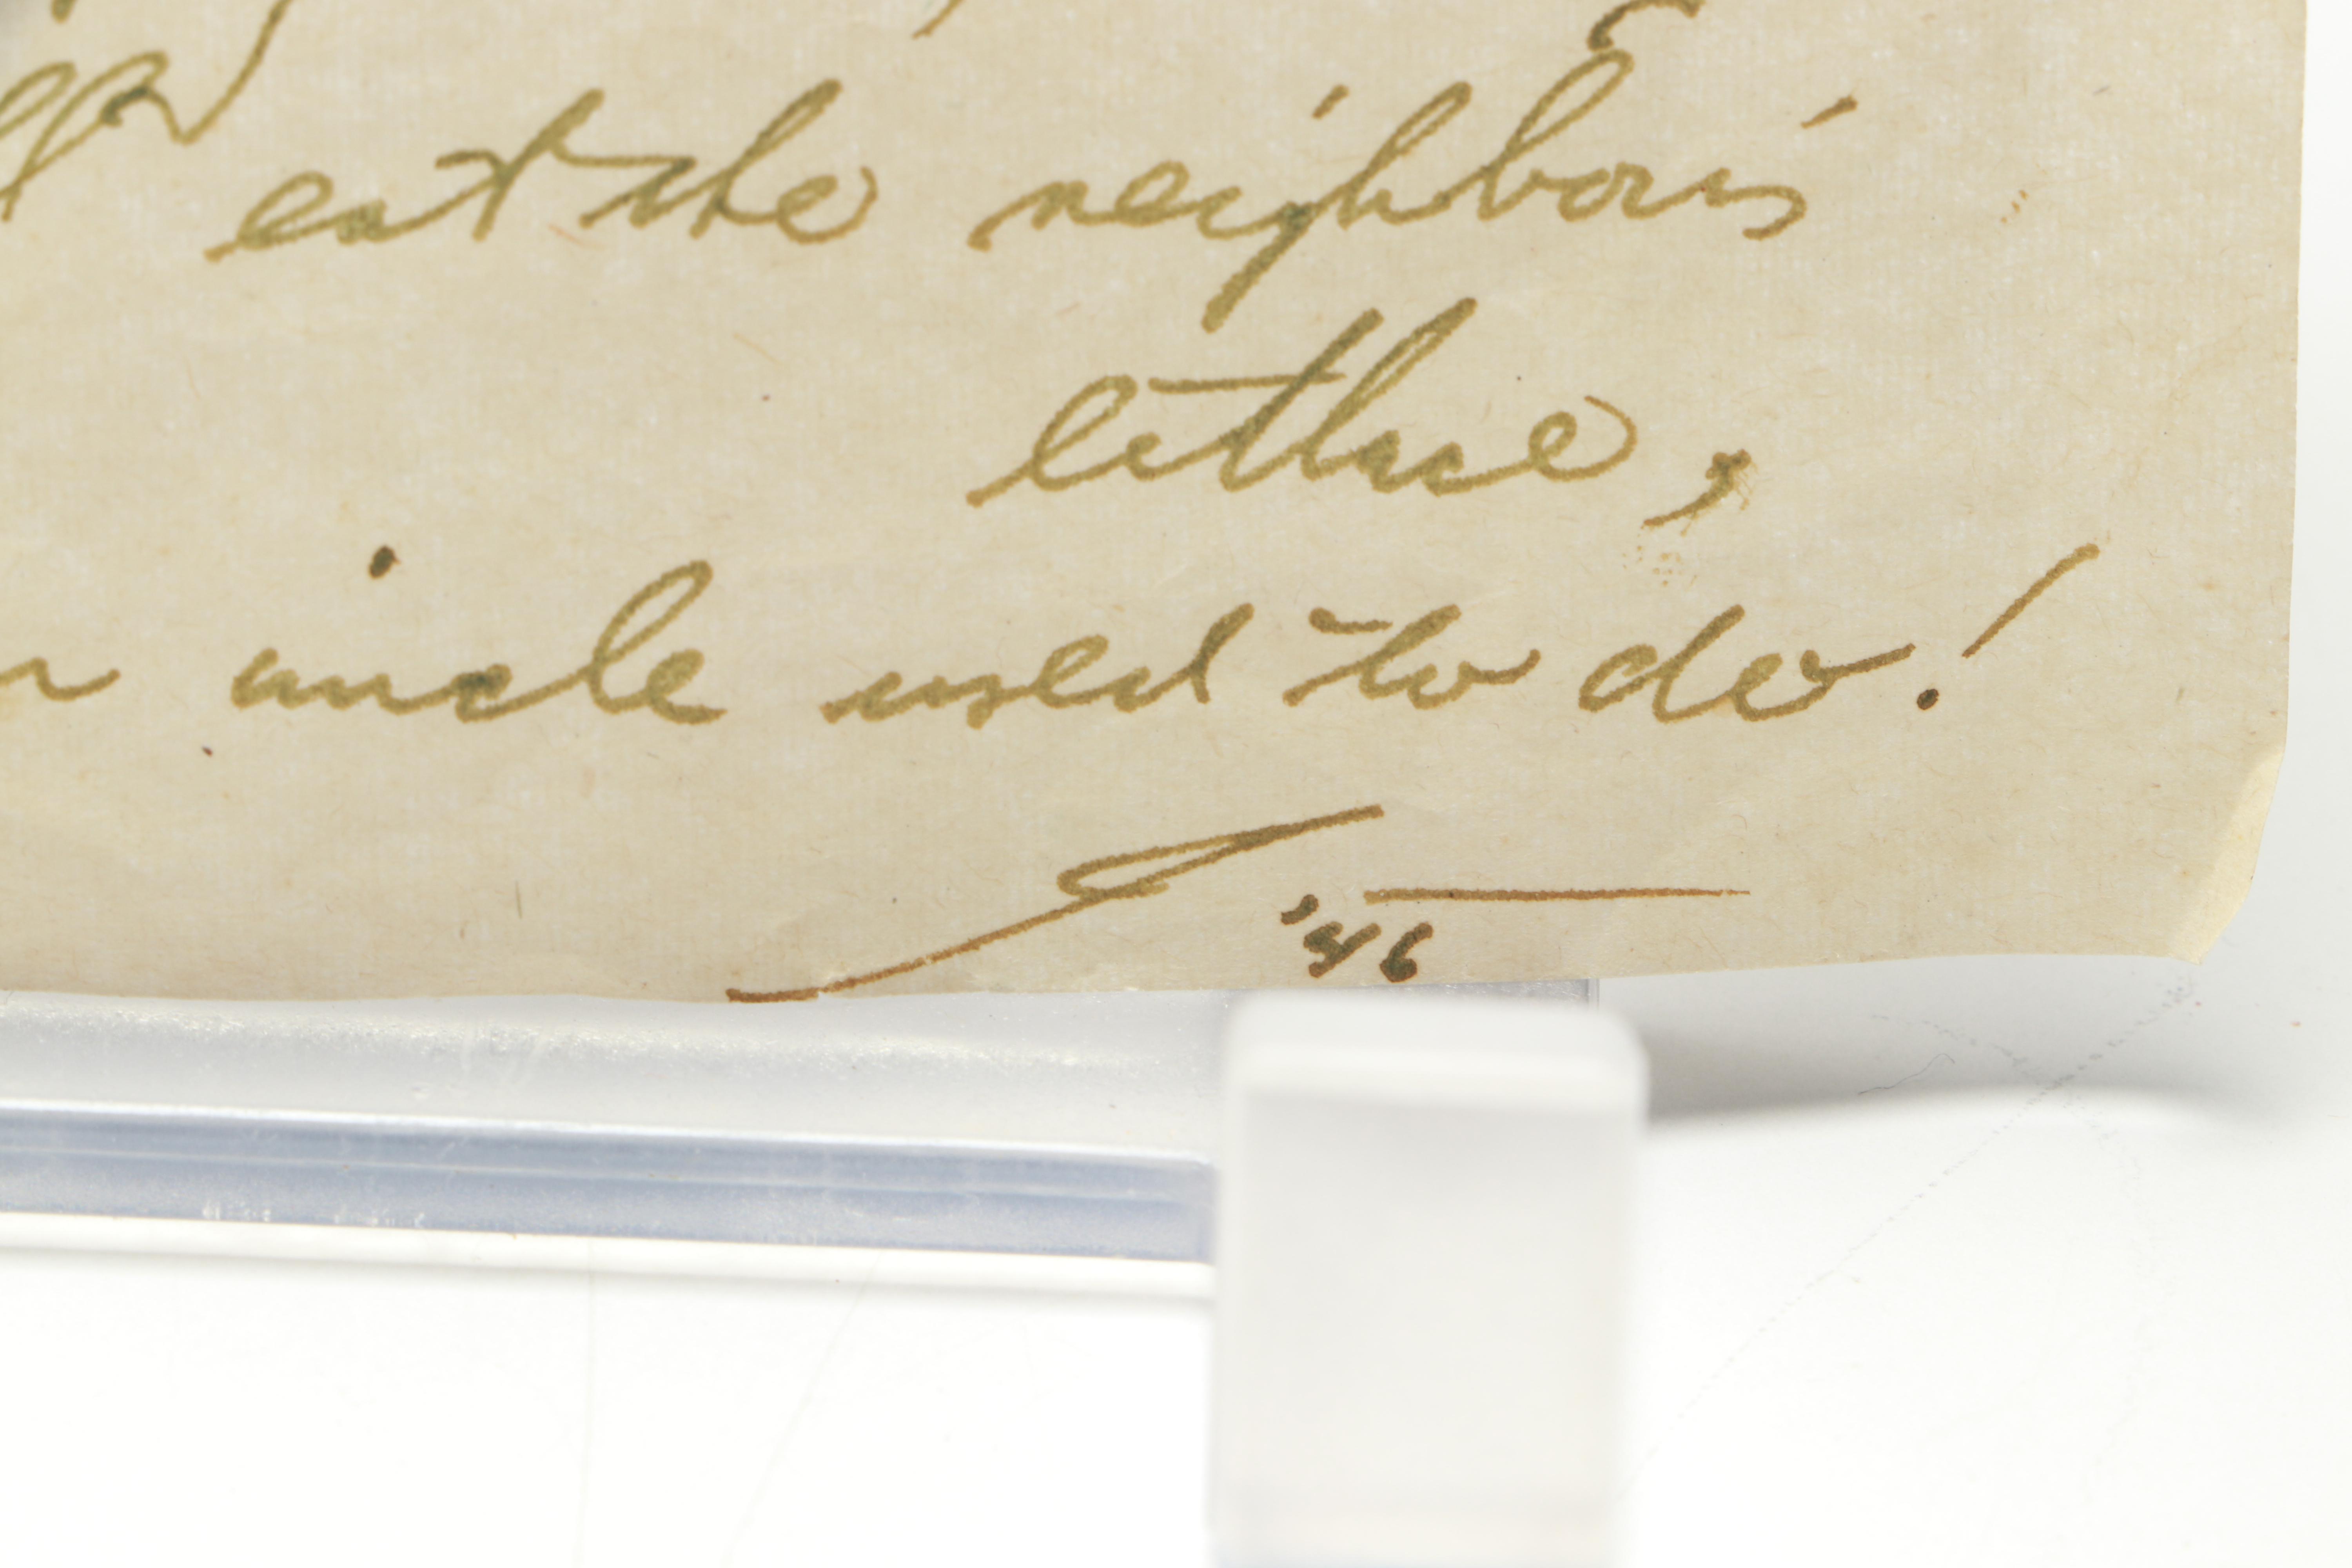 eat the neighbor's
lettuce,
uncle used to do!
'46